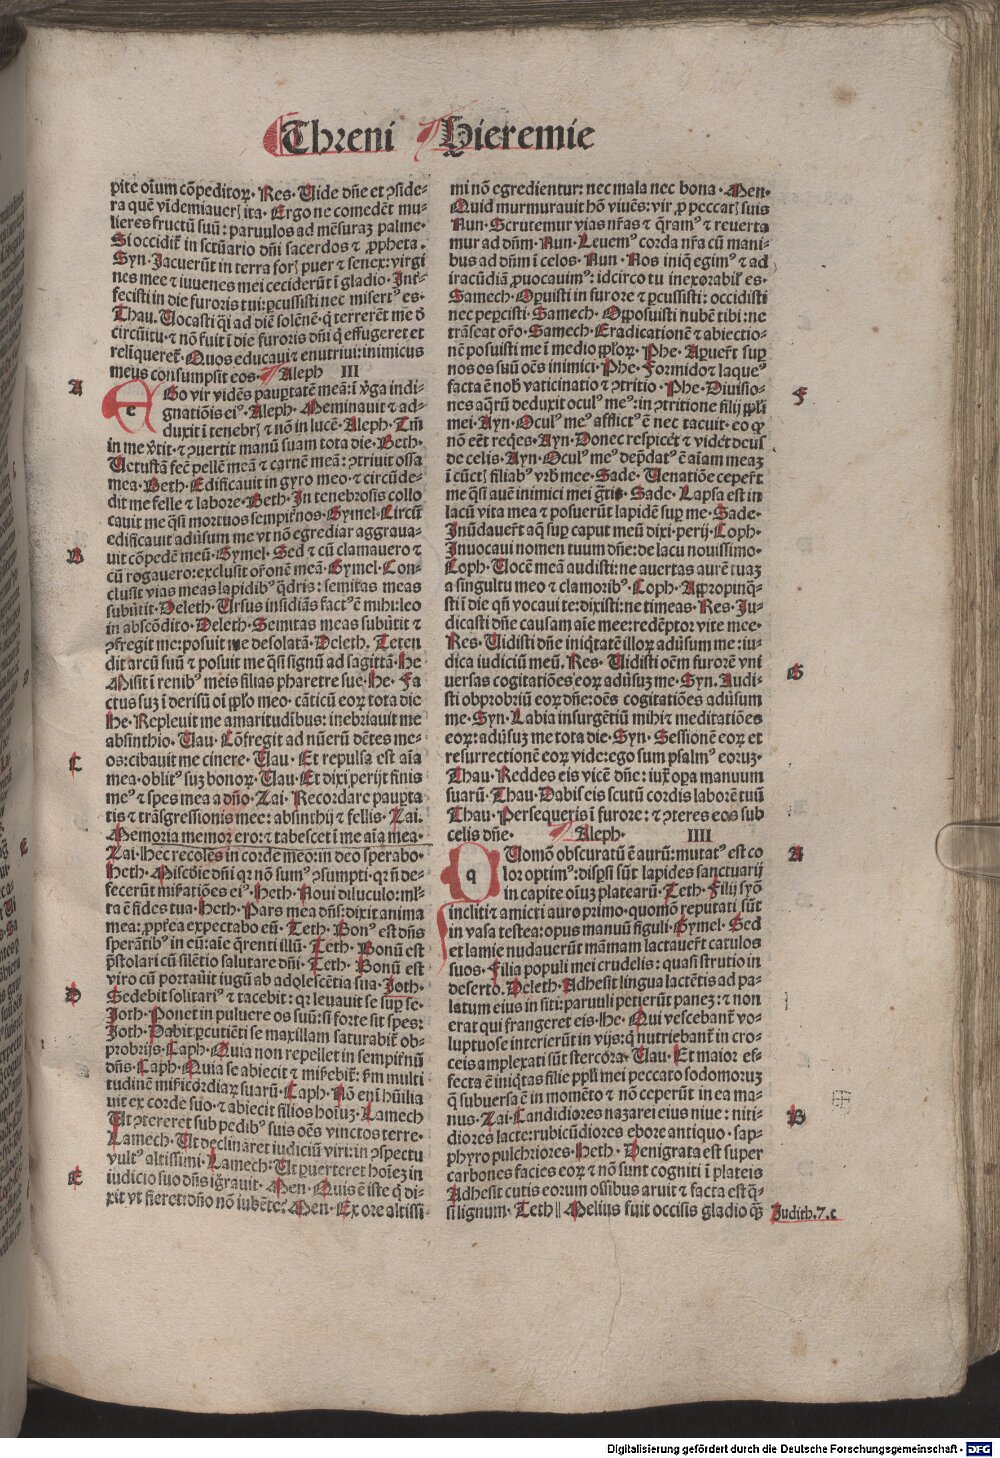 Threni Hieremie
pite oĩum cõpeditoꝝ. Res. Uide dñe et ꝯside-
ra quẽ vĩdemiauerꝭ ita. Ergo ne comedẽt mu-
lieres fructũ suũ: paruulos ad mẽsuraꝫ palme.
Si occidiť in sctũario dñi sacerdos ⁊ ꝓpheta.
Syn. Jacuerũt in terra forꝭ puer ⁊ senex: virgi
nes mee ⁊ iuuenes mei ceciderũt ĩ gladio. Inť-
fecisti in die furoris tui: ꝑcussisti nec misertꝰ es.
Thau. Uocasti q̃i ad diẽ solẽnẽ q̃ terrerẽt me ð
circũitu ⁊ nõ fuit ĩ die furoris dñi q̃ effugeret et
relĩqueret. Quos educaui ⁊ enutriui: inimicus
meus consumpsit eos. Aleph III
A
EGo vir vidẽs paupꝑtatẽ meã: ĩ v̾ga indi-
gnatiõis eiꝰ. Aleph. Meminauit ⁊ ad-
duxit ĩ tenebrꝭ ⁊ nõ in lucẽ. Aleph. Tm̃
in me v̾tit ⁊ ꝯuertit manũ suam tota die. Beth.
Uetustã fec̃ pellẽ meã ⁊ carnẽ meã: ꝯtriuit ossa
mea. Beth. Edificauit in gyro meo ⁊ circũde-
dit me felle ⁊ labore. Beth. In tenebrosis collo
cauit me q̃si mortuos sempiťnos. Gymel. Circũ
edificauit aduẽsum me vt nõ egrediar aggraua-
B
uit cõpedẽ meũ. Gymel. Sed ⁊ cũ clamauero ⁊
cũ rogauero: exclusit oŕonẽ meã. Gymel. Con-
clusit vias meas lapidibꝰ q̃dris: semitas meas
subũtit. Deleth. Ursus insidiãs factꝰ ẽ mihi: leo
in abscõdito. Deleth. Semitas meas subũtit ⁊
ꝯfregit me: posuit me desolatã. Deleth. Teten
dit arcũ suũ ⁊ posuit me q̃si signũ ad sagittã. He
Misit ĩ renibꝰ meis filias pharetre sue. He. Fa
ctus suꝫ ĩ derisũ oĩ pp̃lo meo. cãticũ eoꝝ tota die
He. Repleuit me amaritudĩbus: inebriauit me
absinthio. Uau. Cõfregit ad nũerũ dẽtes me-
C
os: cibauit me cinere. Uau. Et repulsa est aĩa
mea. oblitꝰ suꝫ bonoꝝ. Uau. Et dixi perijt finis
meꝰ ⁊ spes mea a dño. Zai. Recordare pauꝑta
tis ⁊ trãsgressionis mee: absinthij ⁊ fellis. Zai.
Memoria memor ero: ⁊ tabescet ĩ me aĩa mea.
Zai. Hec recolẽs in corde meo: in deo sperabo.
Heth. Miscðie dñi qꝛ nõ sumꝰ ꝯsumpti. qꝛ ñ de-
fecerũt misẽatiões eiꝰ. Heth. Noui diluculo: ml̃-
ta ẽ fides tua. Heth. Pars mea dñs: dixit anima
mea: ꝓpťea expectabo eũ. Teth. Bonꝰ est dñs
sperãtibꝰ in eũ: aĩe q̃renti illũ. Teth. Bonũ est
p̃stolari cũ silẽtio salutare dñi. Teth. Bonũ est
viro cũ portauit iugũ ab adolescẽtia sua. Joth.
D
Sedebit solitariꝰ ⁊ tacebit: qꝛ leuauit se suꝑ se.
Joth. Ponet in puluere os suũ: si forte sit spes:
Joth. Dabit ꝑcutiẽti se maxillam saturabiť ob-
probrijs. Caph. Quia non repellet in sempiťnũ
dñs. Caph. Quia se abiecit ⁊ misẽbiť: ẜm multi
tudinẽ misẽicordiaꝝ suarũ. Caph. Nõ eni hũilia
uit ex corde suo. ⁊ abiecit filios hoĩuꝫ. Lamech
Ut ꝯtereret sub pedibꝰ suis oẽs vinctos terre.
Lamech. Ut declinaret iudiciũ viri: in ꝯspectu
vultꝰ altissimi. Lamech: Ut puerteret hoĩeꝫ in
E
iudicio suo dñs ig̃rauit. Men. Quis ẽ iste q̃ di-
xit vt fieret: dño nõ iubẽte? Men. Ex ore altissi
mi nõ egredientur: nec mala nec bona. Men.
Quid murmurauit hõ viuẽs: vir ꝓ peccatꝭ suis
Nun. Scrutemur vias nr̃as ⁊ q̃ramꝰ ⁊ reuerta
mur ad dñm. Nun. Leuemꝰ corda nr̃a cũ mani-
bus ad dñm ĩ celos. Nun. Nos iniq̃ egimꝰ ⁊ ad
iracũdiã ꝓuocauimꝰ: idcirco tu inexorabil̃ es.
Samech. Oꝑuisti in furore ⁊ ꝑcussisti: occidisti
nec peꝑcisti. Samech. Opposuisti nubẽ tibi: ne
trãseat oŕo. Samech. Eradicationẽ ⁊ abiectio-
nẽ posuisti me ĩ medio pp̃loꝝ. Phe. Aꝑuerť suꝑ
nos os suũ oẽs inimici. Phe. Formido ⁊ laqueꝰ
F
facta ẽ nob̃ vaticinatio ⁊ ꝯtritio. Phe. Diuisio-
nes aq̃rũ deduxit oculꝰ meꝰ: in ꝯtritione filij pp̃li
mei. Ayn. Oculꝰ meꝰ afflictꝰ ẽ nec tacuit. eo ꝙ
nõ eẽt req̃es. Ayn. Donec respicẽt ⁊ vidẽt deus
de celis. Ayn. Oculꝰ meꝰ dep̃datꝰ ẽ aĩam meaꝫ
ĩ cũctꝭ filiabꝰ vrb̃ mee. Sade. Uenatiõe ceperť
me q̃si auẽ inimici mei g̃tis. Sade. Lapsa est in
lacũ vita mea ⁊ posuerũt lapidẽ suꝑ me. Sade.
Inũdauerť aq̃ suꝑ caput meũ dixi. perij. Coph.
Inuocaui nomen tuum dñe: de lacu nouissimo.
Coph. Uocẽ meã audisti: ne auertas aurẽ tuaꝫ
a singultu meo ⁊ clamoribꝰ. Coph. Appropinq̃-
sti ĩ die qñ vocaui te: dixisti: ne timeas. Res. Ju-
dicasti dñe causam aĩe mee: redẽptor vite mee.
Res. Uidisti dñe iniq̃tatẽ illoꝝ aduẽsum me: iu-
G
dica iudiciũ meũ. Res. Uidisti oẽm furorẽ vni
uersas cogitatiões eoꝝ aduẽsuꝫ me. Syn. Audi-
sti obprobriũ eoꝝ dñe: oẽs cogitatiões aduẽsum
me. Syn. Labia insurgẽtiũ mihi ⁊ meditatiões
eoꝝ: aduẽsuꝫ me tota die. Syn. Sessionẽ eoꝝ et
resurrectionẽ eoꝝ vide: ego sum psalmꝰ eoruꝫ.
Thau. Reddes eis vicẽ dñe: iuꝝ opa manuum
suarũ. Thau. Dabis eis scutũ cordis laborẽ tuũ
Thau. Persequeris ĩ furore: ⁊ ꝯteres eos sub
celis dñe. Aleph. IIII
A
QUomõ obscuratũ ẽ aurũ: mutatꝰ est co
lor optimꝰ: dispsi sũt lapides sanctuarij
in capite oĩuꝫ platearũ. Teth. Filij syõ
incliti ⁊ amicti auro primo. quomõ reputati sũt
in vasa testea: opus manuũ figuli. Gymel. Sed
et lamie nudauerũt mãmam lactauerť catulos
suos. Filia populi mei crudelis: quasi strutio in
deserto. Deleth. Adhesit lingua lactẽtis ad pa-
latum eius in siti: paruuli petierũt paneꝫ: ⁊ non
erat qui frangeret eis. He. Qui vescebanť vo-
luptuose interierũt in vijs: q̃ nutriebanť in cro-
ceis amplexati sũt stercora. Uau. Et maior ef-
fecta ẽ iniq̃tas filie pp̃li mei peccato sodomoruꝫ
q̃ subuersa ẽ in momẽto ⁊ nõ ceperũt in ea ma-
B
nus. Zai. Candidiores nazarei eius niue: niti-
diores lacte: rubicũdiores ebore antiquo. sap-
phyro pulchriores. Heth. Denigrata est super
carbones facies eoꝝ ⁊ nõ sunt cogniti ĩ plateis
Adhesit cutis eorum ossibus aruit ⁊ facta est q̃-
si lignum. Teth Melius fuit occisis gladio q̃ꝫ
Judith.7.c
Digitalisierung gefördert durch die Deutsche Forschungsgemeinschaft - DFG